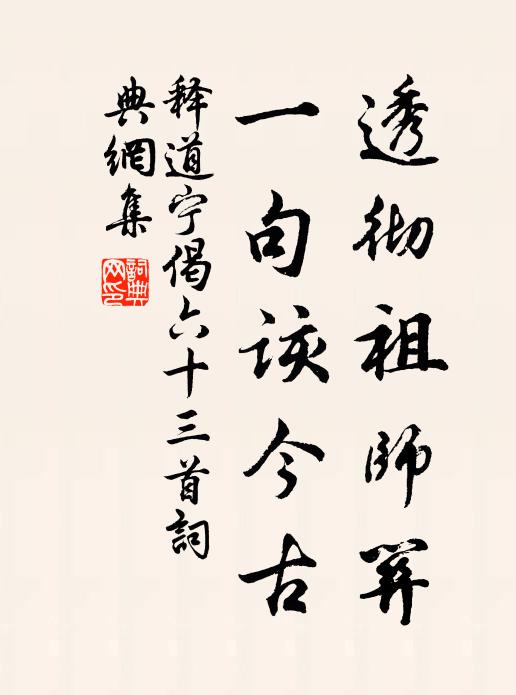 透彻祖師关
一句该今古
释道宁偈六十三首詞
典網集
詞典
网印